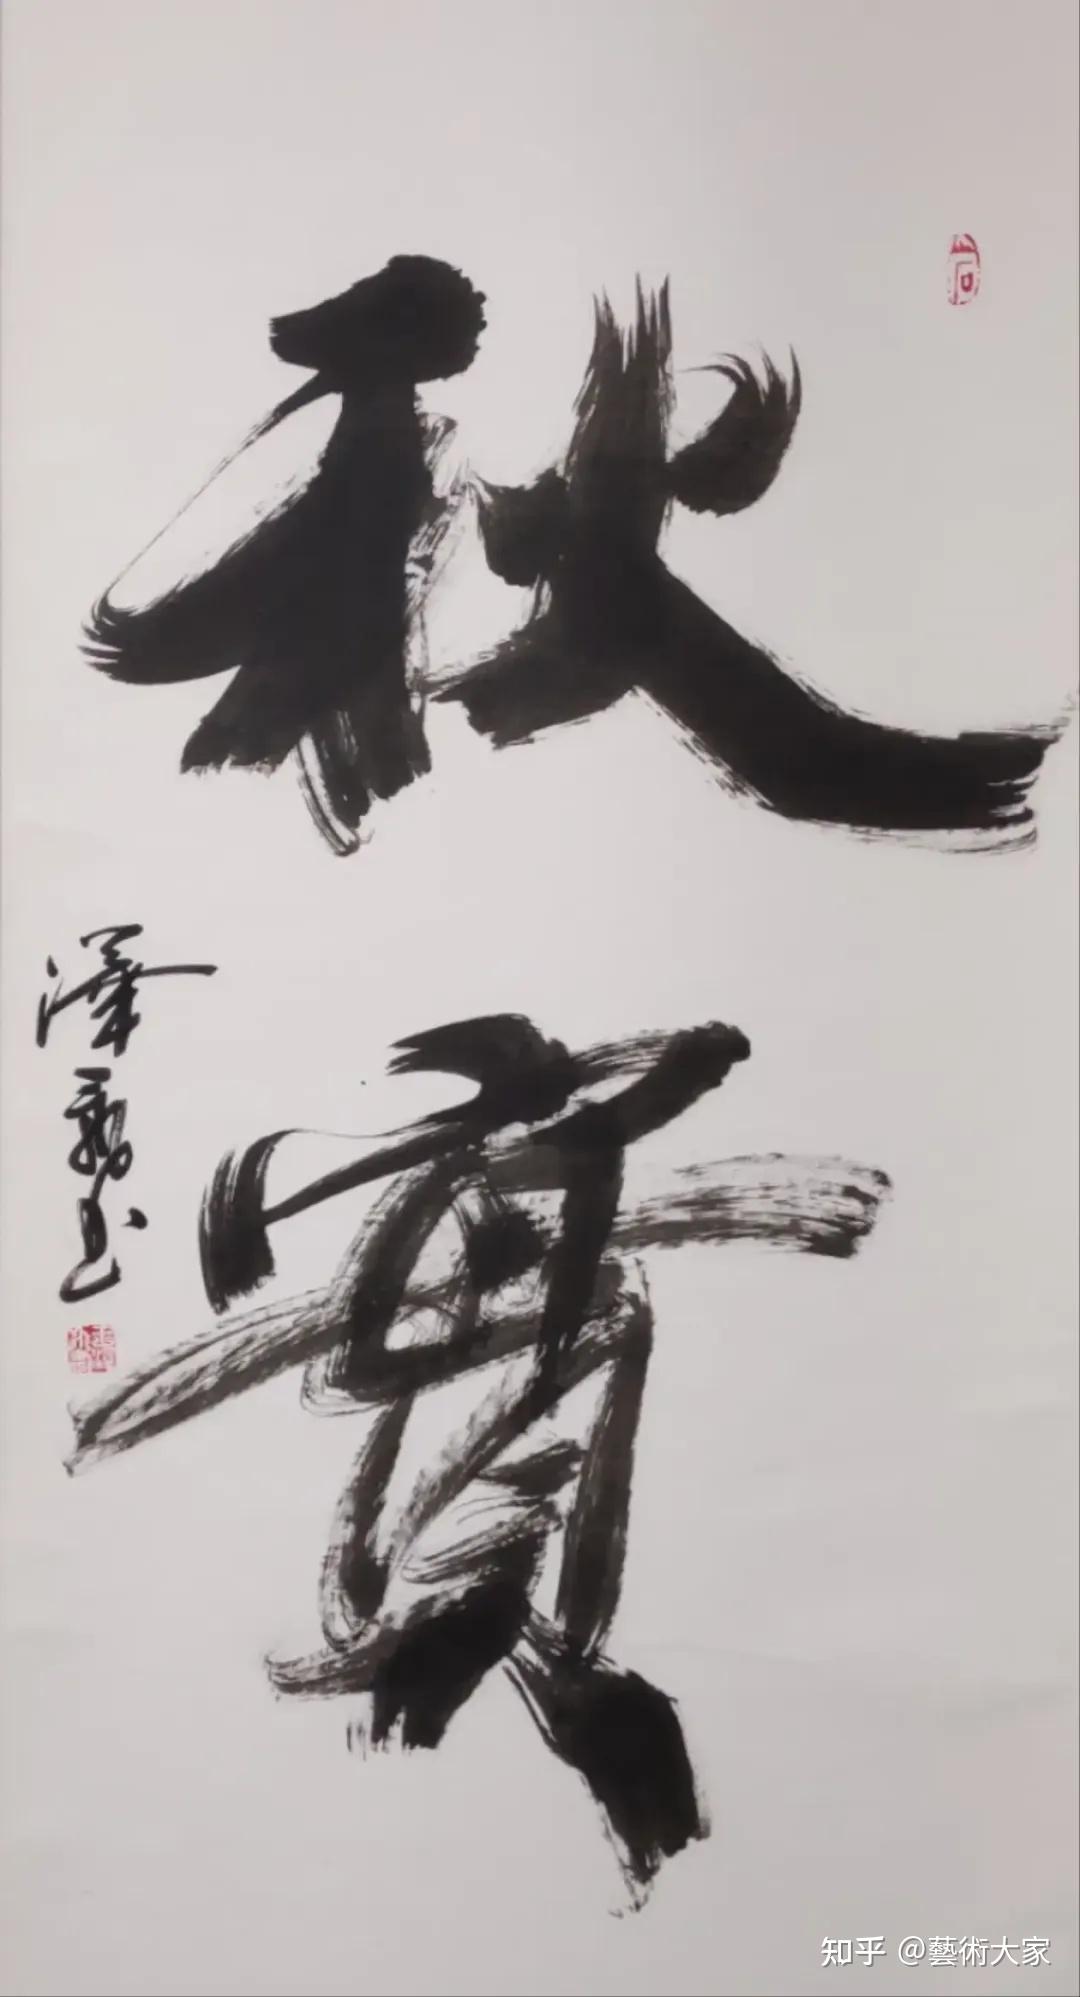 秋
實
澤勇書
知乎 @藝術大家